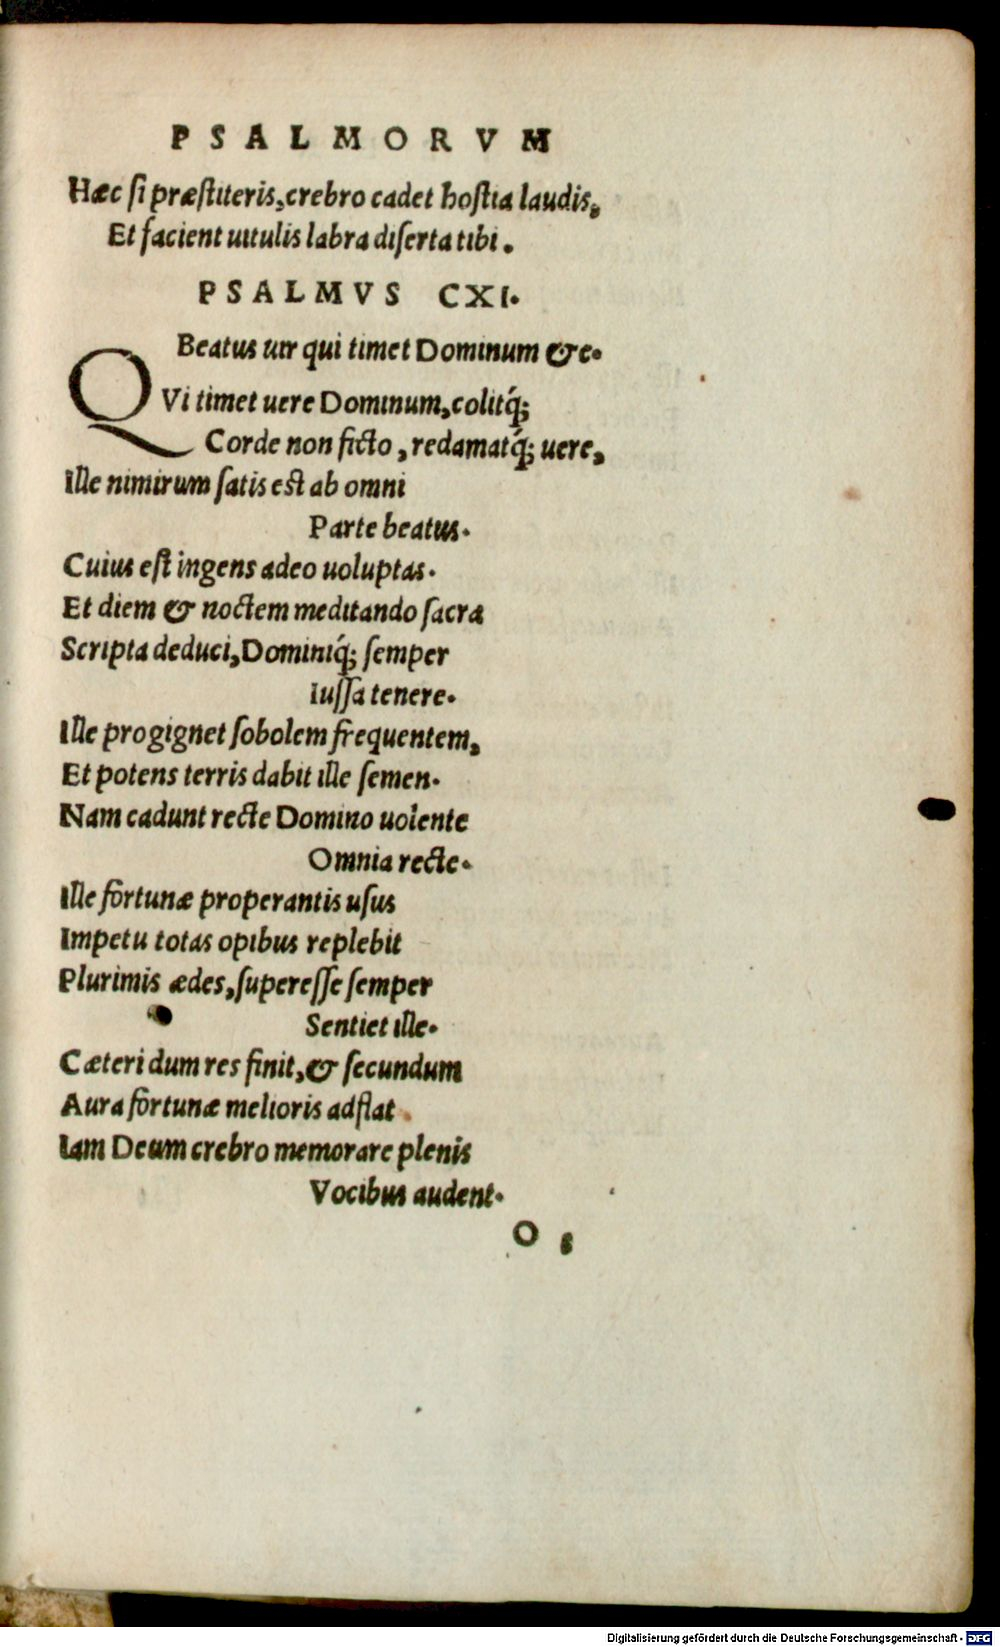 PSALMORVM
Hæc si præstiteris, crebro cadet hostia laudis,
Et facient uitulis labra diserta tibi.
PSALMVS CXI.
Beatus uir qui timet Dominum &c.
QVi timet uere Dominum, colitq́;
Corde non ficto, redamatq́; uere,
Ille nimirum satis est ab omni
Parte beatus.
Cuius est ingens adeo uoluptas.
Et diem & noctem meditando sacra
Scripta deduci, Dominiq́; semper
Iussa tenere.
Ille progignet sobolem frequentem,
Et potens terris dabit ille semen.
Nam cadunt recte Domino uolente
Omnia recte.
Ille fortunæ properantis usus
Impetu totas opibus replebit
Plurimis ædes, superesse semper
Sentiet ille.
Cæteri dum res finit, & secundum
Aura fortunæ melioris adflat
Iam Deum crebro memorare plenis
Vocibus audent.
O
Digitalisierung gefördert durch die Deutsche Forschungsgemeinschaft - DFG